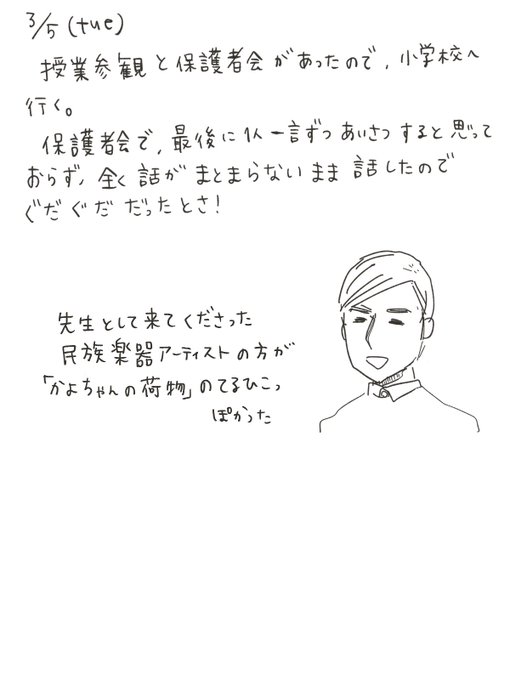 3/5 (tue)
授業参観と保護者会があったので、小学校へ
行く。
保護者会で、最後に1人一言ずつあいさつすると思って
おらず、全く話がまとまらないまま話したので
ぐだぐだだったとさ!
先生として来てくださった
民族楽器アーティストの方が
「かよちゃんの荷物」のてるひこっ
ぽかった